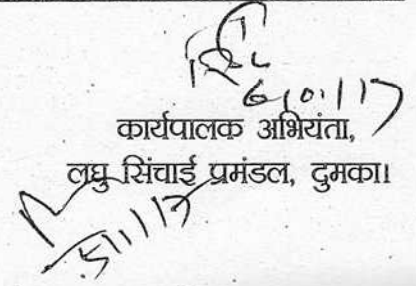 6/01/17
कार्यपालक अभियंता,
लघु सिंचाई प्रमंडल, दुमका।
5/1/17